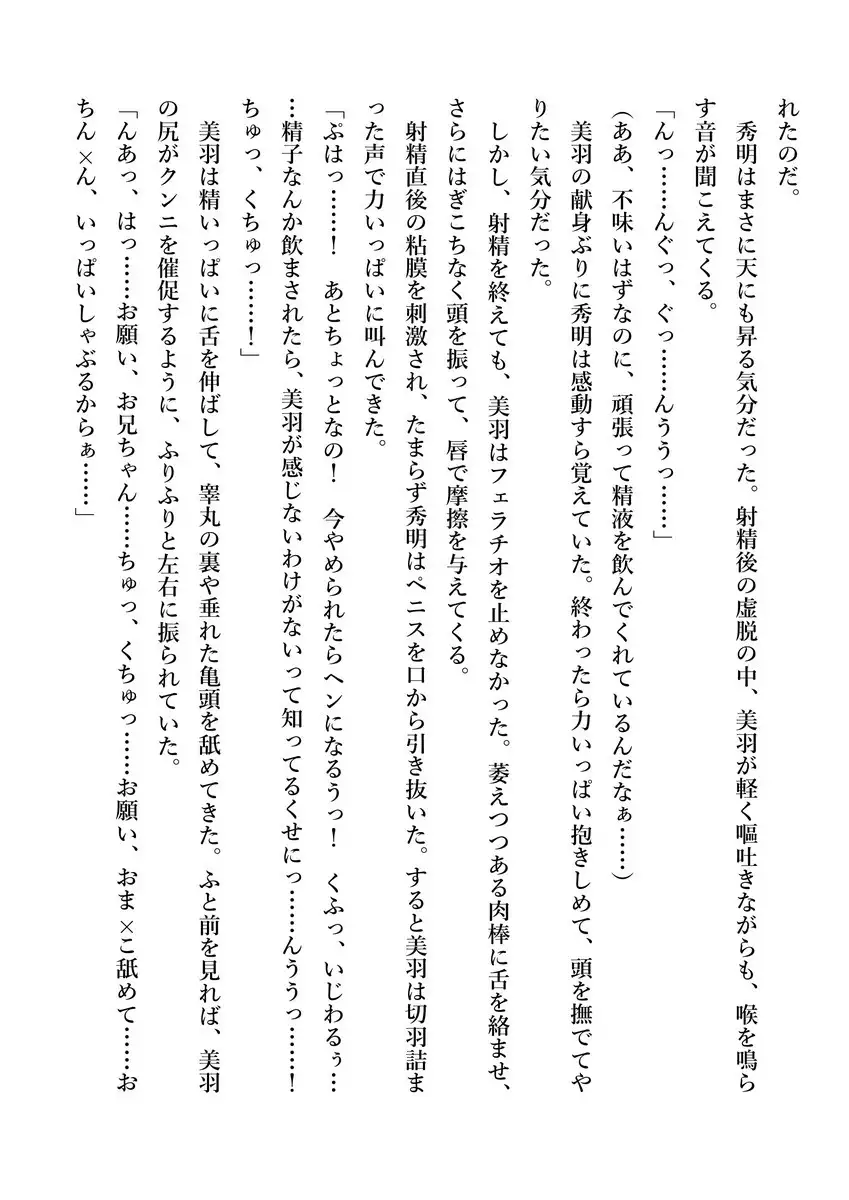 れたのだ。
　秀明はまさに天にも昇る気分だった。射精後の虚脱の中、美羽が軽く嘔吐きながらも、喉を鳴ら
す音が聞こえてくる。
「んっ……んぐっ、ぐっ……んううっ……」
(ああ、不味いはずなのに、頑張って精液を飲んでくれているんだなぁ……)
　美羽の献身ぶりに秀明は感動すら覚えていた。終わったら力いっぱい抱きしめて、頭を撫でてや
りたい気分だった。
　しかし、射精を終えても、美羽はフェラチオを止めなかった。萎えつつある肉棒に舌を絡ませ、
さらにはぎこちなく頭を振って、唇で摩擦を与えてくる。
　射精直後の粘膜を刺激され、たまらず秀明はペニスを口から引き抜いた。すると美羽は切羽詰ま
った声で力いっぱいに叫んできた。
「ぷはっ……！　あとちょっとなの！　今やめられたらヘンになるうっ！　くふっ、いじわるぅ…
…精子なんか飲まされたら、美羽が感じないわけがないって知ってるくせにっ……んううっ……！
ちゅっ、くちゅっ……！」
　美羽は精いっぱいに舌を伸ばして、睾丸の裏や垂れた亀頭を舐めてきた。ふと前を見れば、美羽
の尻がクンニを催促するように、ふりふりと左右に振られていた。
「んあっ、はっ……お願い、お兄ちゃん……ちゅっ、くちゅっ……お願い、おま×こ舐めて……お
ちん×ん、いっぱいしゃぶるからぁ……」